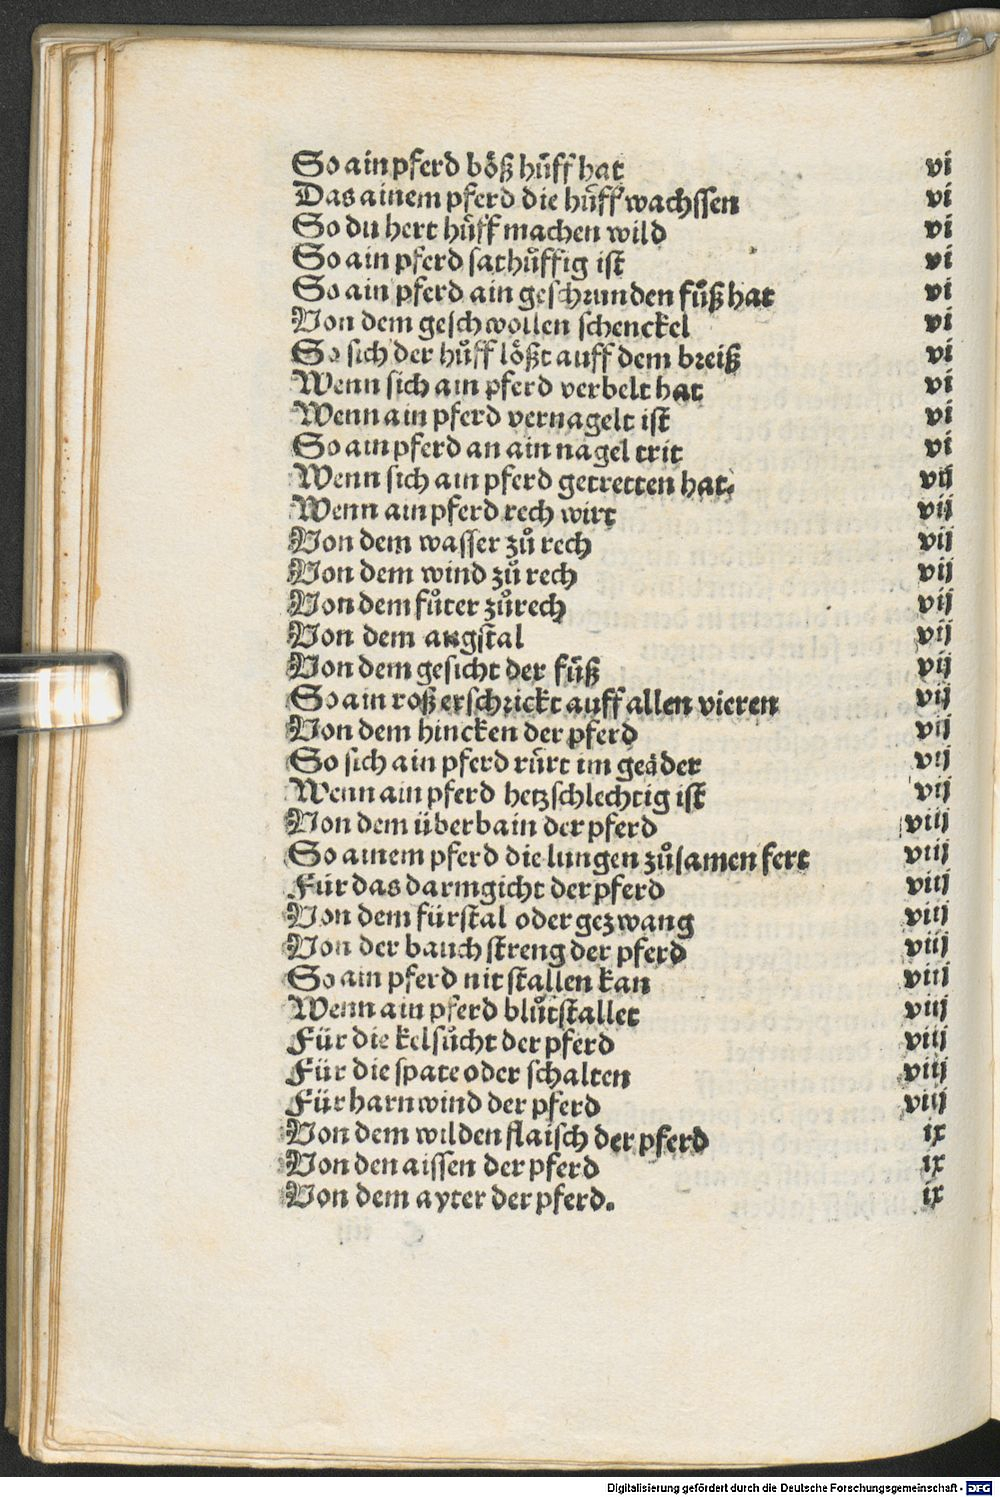 So ain pferd bôß hůff hat vi
Das ainem pferd die hůff wachssen vi
So du hert hůff machen wild vi
So ain pferd sathůffig ist vi
So ain pferd ain geschrunden fůß hat vi
Von dem geschwollen schenckel vi
So sich der hůff lôßt auff dem breiß vi
Wenn sich ain pferd verbelt hat vi
Wenn ain pferd vernagelt ist vi
So ain pferd an ain nagel trit vi
Wenn sich ain pferd getretten hat. vij
Wenn ain pferd rech wirt vij
Von dem wasser zů rech vij
Von dem wind zů rech vij
Von dem fůter zů rech vij
Von dem augstal vij
Von dem gesicht der fůß vij
So ain roß erschrickt auff allen vieren vij
Von dem hincken der pferd vij
So sich ain pferd rürt im geäder vij
Wenn ain pferd hetzschlechtig ist vij
Von dem überbain der pferd viij
So ainem pferd die lungen zůsamen fert viij
Für das darmgicht der pferd viij
Von dem fürstal oder gezwang viij
Von der bauch streng der pferd viij
So ain pferd nit stallen kan viij
Wenn ain pferd blůtstallet viij
Für die kelsůcht der pferd viij
Für die spate oder schalten viij
Für harnwind der pferd viij
Von dem wilden flaisch der pferd ix
Von den aissen der pferd ix
Von dem ayter der pferd. ix
Digitalisierung gefördert durch die Deutsche Forschungsgemeinschaft - DFG